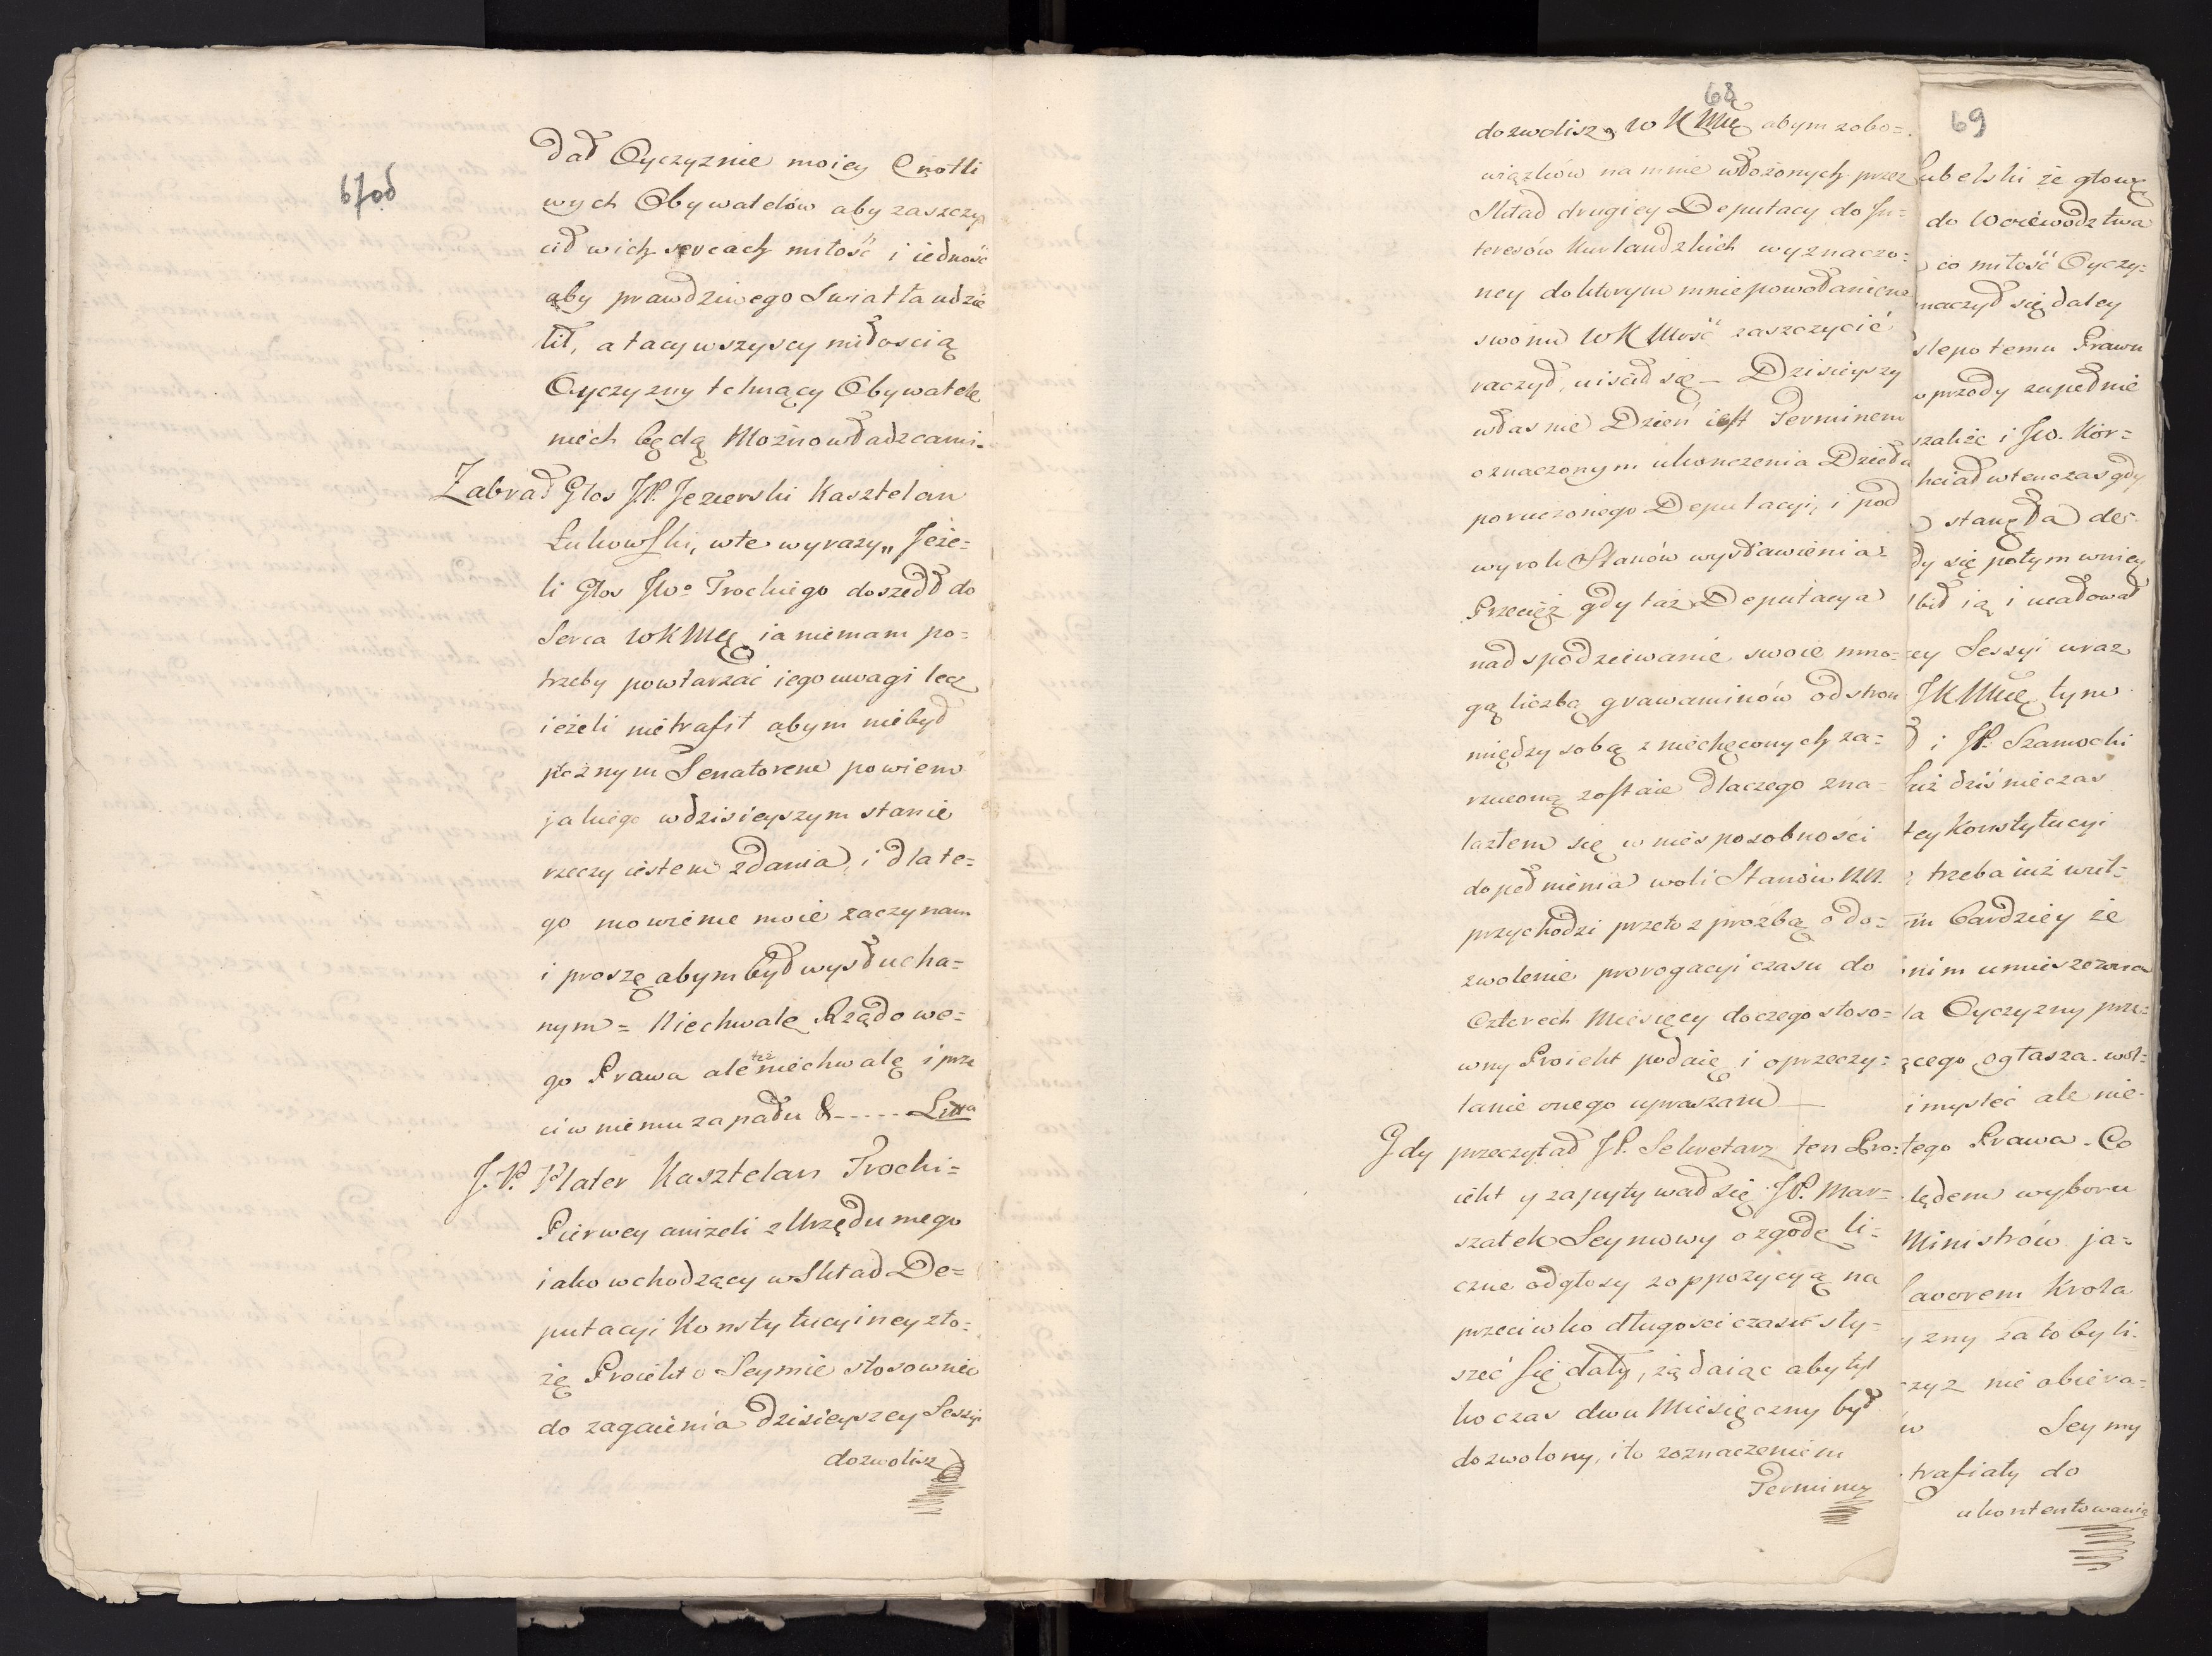 67od
dał Oyczyznie moiey Cnotli
wych Obywatelów aby zaszczy
cił w ich sercach miłość i iedność
aby prawdziwego Swiatła udzie
lił, a tacy wszyscy miłoscią
Oyczyzny tchnący Obywatele
niech będą Możnowładzcami.
Zabrał Głos JP. Jezierski Kasztelan
Łukowski, w te wyrazy„ Jeże=
li Głos JWo Trockiego doszedł do
Serca WKMci ia niemam po=
trzeby powtarzać iego uwagi lecz
ieżeli nie trafił abym nie był
płoznym Senatorem powiem
jakiego w dzisieyszym stanie
rzeczy iestem zdania, i dla te=
go mowienie moie zaczynam
i proszę abym był wysłucha=
nym = Niechwalę Rządowe=
go Prawa ale też niechwalę i prze
ciw niemu zapału & ..... Litt a
J.P. Plater Kasztelan Trocki =
Pierwey aniżeli z Urzędu mego
iako wchodzący w Skład De=
putacyi Konstytucyiney zło=
żę Proiekt o Seymie stosownie
do zagaienia dzisieyszey Sessyi
dozwolisz
68
dozwolisz WKMć abym z obo=
wiązków na mnie włożonych przez
Skład drugiey Deputacy do In=
teresów Kurlandzkich wyznaczo=
ney do którym mnie powołaniem
swoim WKMość zaszczycić
raczył, uiscił się — Dzisieyszy
własnie Dzień iest Terminem
oznaczonym ukonczenia Dzieła
poruczonego Deputacyi, i pod
wyrok Stanów wystawienia.
Przecięż gdy taż Deputacya
nad spodziewanie swoie mno=
gą liczbą grawaminów od stron
między sobą zniechęconych za=
rzuconą zostaie dlaczego zna=
lazłem się w niesposobności
dopełnienia woli Stanów NN.
przychodzi przeto z prozbą o do=
zwolenie prorogacyi czasu do
Czterech Miesięcy do czego stoso=
wny Proiekt podaię i o przeczy=
tanie onego upraszam —
Gdy przeczytał JP. Sekretarz ten Pro=
iekt y zapytywał się JP. Mar=
szałek Seymowy o zgodę li=
czne odgłosy z oppozycyą na
przeciwko długości czasu sły=
szeć się dały, żądaiąc aby tyl
ko czas dwu Miesięczny był
dozwolony, i to z oznaczeniem
Terminu
69
Lubelski że głową
do Woiewodztwa
co miłość Oyczy=
maczył się daley
slepo temu Prawu
przody zupełnie
szaliże i JW. Kor=
hciał wtenczas gdy
stanęła de=
dy się potym w niey
bił ią i ucałował
ey Sessyi wraz
JKMcię tym
i JP. Szamocki
Już dziś nie czas
tey Konstytucyi
trzeba iuż wzel=
m bardziey że
nim umieszczona
la Oyczyzny prze=
ącego ogłasza. wol=
i mysleć ale nie=
tego Prawa. Co
lędem wyboru
Ministrów ja=
favorem Krola
yzny za to byli.
czyz nie obiera=
w Seymy
trafiały do
ukontentowania